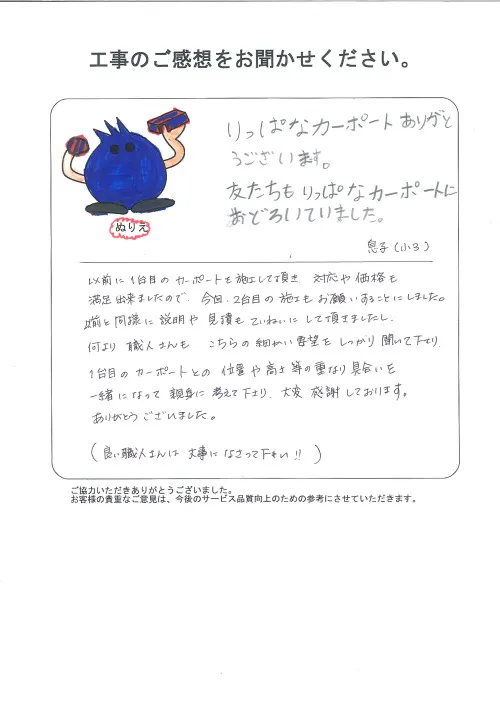 工事のご感想をお聞かせください。
りっぱなカーポートありがと
うございます。
友たちもりっぱなカーポートに
おどろいていました。
ぬりえ
息子(小3)
以前に1台目のカーポートを施工して頂き 対応や価格も
満足出来ましたので、今回、2台目の施工もお願いすることにしました。
以前と同様に説明や見積もていねいにして頂きましたし、
何より職人さんも こちらの細かい要望をしっかり聞いて下さり、
1台目のカーポートとの位置や高さ等の重なり具合いを
一緒になって親身に考えて下さり、大変感謝しております。
ありがとうございました。
(良い職人さんは大事になさって下さい!!)
ご協力いただきありがとうございました。
お客様の貴重なご意見は、今後のサービス品質向上のための参考にさせていただきます。